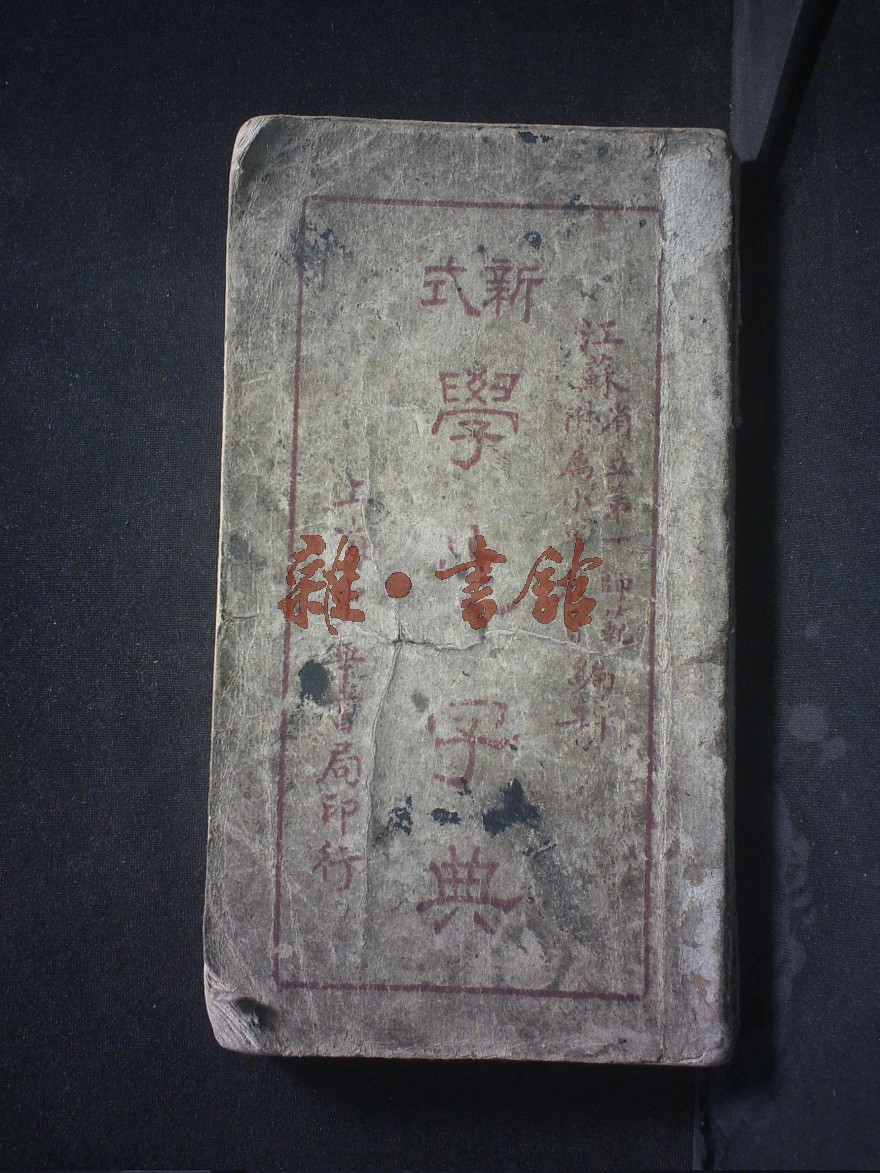 江蘇
省立第一師範
附属小
編輯
新式
學生字典
上海 華書局印行
雜·書館